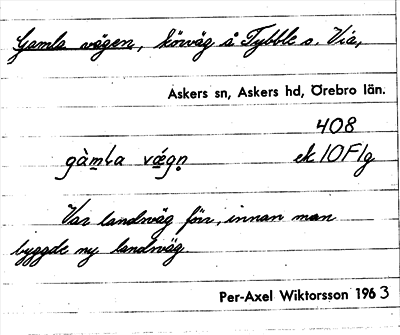 Gamla vägen, körväg å Tybble o. Via,
Askers sn, Askers hd, Örebro län.
408
gàmla vǽgn̥ ek 10F1g
Var landsväg förr, innan man
byggde ny landsväg.
Per-Axel Wiktorsson 1963